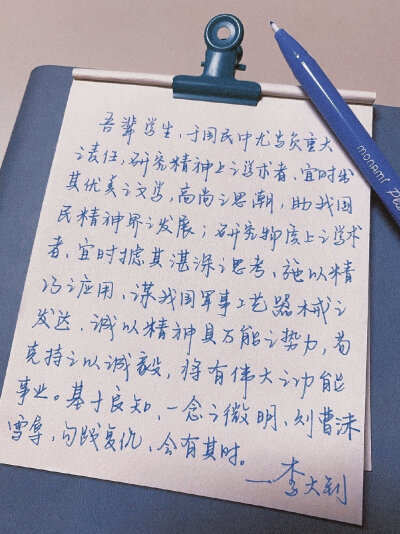 吾辈学生，于国民中尤当负重大
之责任，研究精神上之学术者，宜时出
其优美之文学，高尚之思潮，助我国
民精神界之发展；研究物质上之学术
者，宜时摅其湛深之思考，施以精
巧之应用，谋我国军事工艺器械之
发达，诚以精神具万能之势力，苟
克持之以诚毅，将有伟大之功能
事业。基于良知，一念之微明，则曹沫
雪辱，勾践复仇，会有其时。
—李大钊
monami